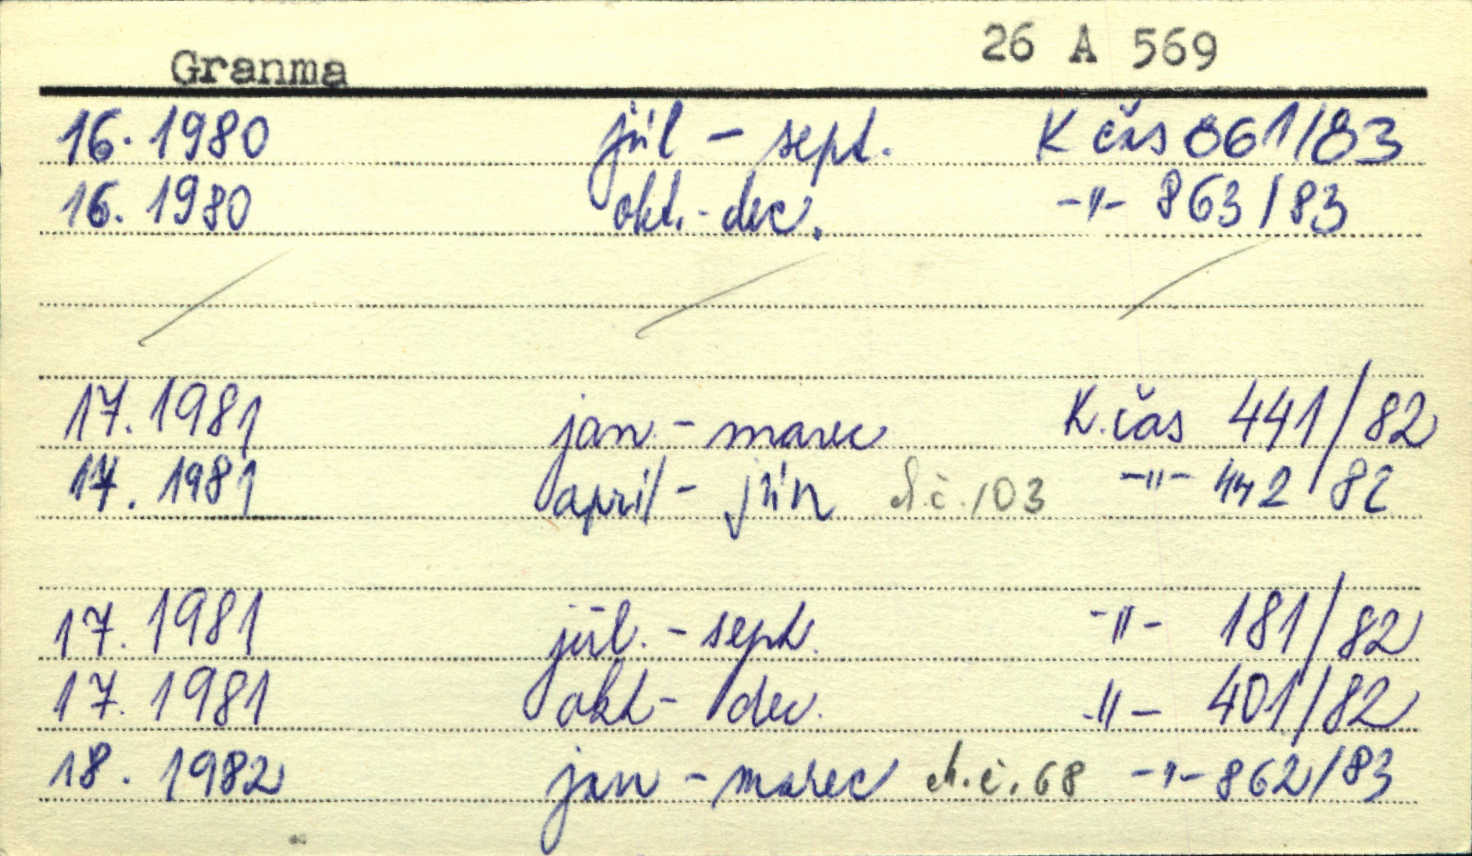 Granma 26 A 569
16. 1980 júl - sept. K čas 861/83
16. 1980 okt. - dec. -"- 863/83
17. 1981 jan - marec K. čas 441/82
17. 1981 april - jún ch.č. 103 -"- 442/82
17. 1981 júl. - sept. -"- 181/82
17. 1981 okt - dec. -"- 401/82
18. 1982 jan - marec ch.č. 68 -"- 862/83